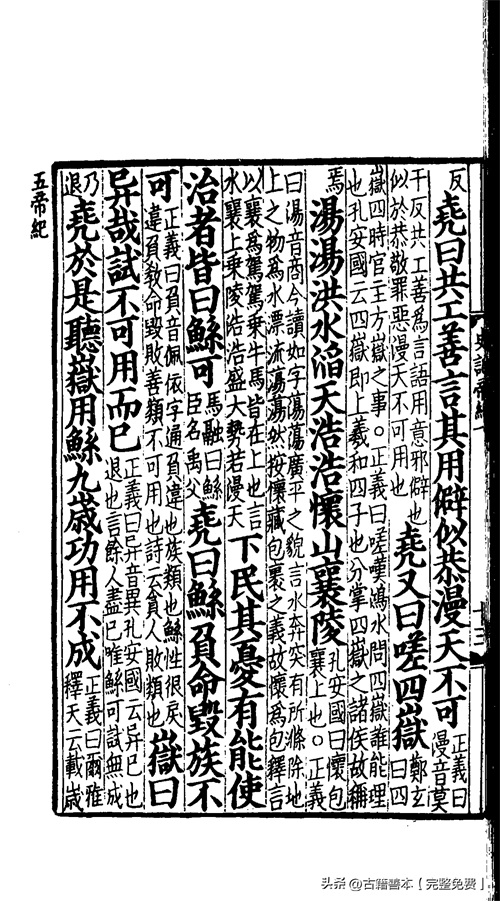 反堯曰共工善言其用僻似恭漫天不可正義曰漫音莫
干反共工善為言語用意邪僻也似於恭敬罪惡漫天不可用也堯又曰嗟四嶽鄭玄曰四
嶽四時官主方嶽之事○正義曰嗟嘆鴻水問四嶽誰能理也孔安國云四嶽即上羲和四子也分掌四嶽之諸侯故稱
焉湯湯洪水滔天浩浩懷山襄陵孔安國曰懷包襄上也○正義
曰湯音商今讀如字蕩蕩廣平之貌言水奔突有所滌除地上之物為水漂流蕩蕩然按懷藏包裹之義故懷為包釋言
以襄為駕駕乘牛馬皆在上也言水襄上乘陵浩浩盛大勢若漫天下民其憂有能使
治者皆曰鯀可馬融曰鯀臣名禹父堯曰鯀負命毀族不
可正義曰負音佩依字通負違也族類也鯀性很戾違負教命毀敗善類不可用也詩云貪人敗類也嶽曰
异哉試不可用而已正義曰异音異孔安國云异已也退也言餘人盡已唯鯀可試無成
乃退堯於是聽嶽用鯀九歲功用不成正義曰爾雅釋天云載歲
五帝紀
头条 @古籍善本【完整免费】